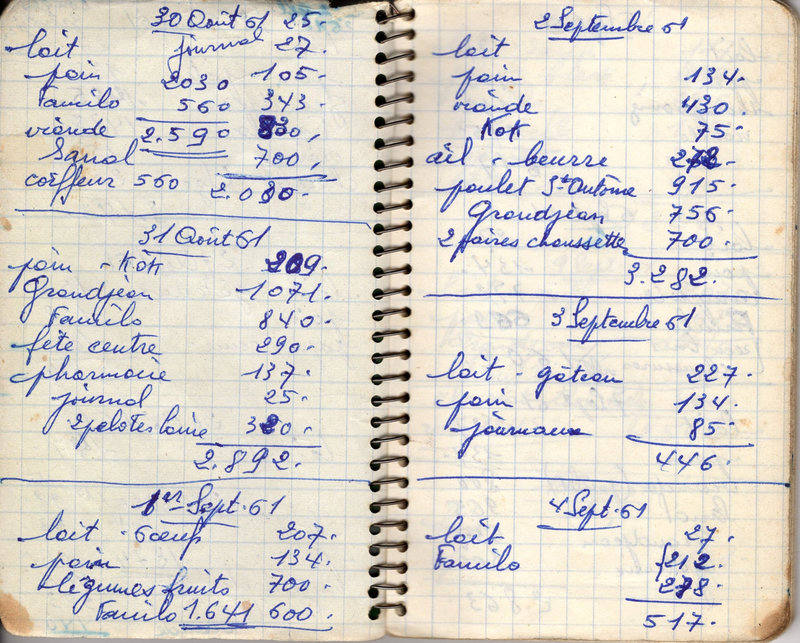 30 Août 61 25.
lait journal 27.
pain 2030 105.
Familo 560 343.
viande 2.590 830.
Sanal 700.
coiffeur 560 2.080.
31 Août 61
pain - KOK 209.
Grandjean 1071.
Familo 840.
fête centre 290.
pharmacie 137.
journal 25.
2 pelotes laine 320.
2.892.
1er Sept. 61
lait - 6 oeufs 207.
pain 134.
légumes fruits 700.
Familo 1.641 600.
2 Septembre 61
lait
pain 134.
viande 430.
KOK 75.
ail - beurre 272.
poulet St Antoine 915.
Grandjean 756.
2 paires chaussette 700.
3.282.
3 Septembre 61
lait - gâteau 227.
pain 134.
journaux 85.
446.
4 Sept. 61
lait 27.
Familo {212.
278.
517.